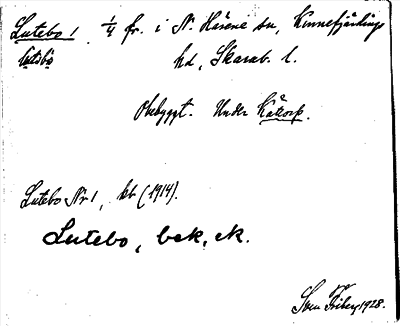 Lutebo 1 1/4 fr. i N. Härene sn, Kinnefjärdings
lutebo hd, Skarab. l.
Obebyggt. Under Kåtorp.
Lutebo Nr 1, kb (1914).
Lutebo, bek, ek.
Sven Friberg 1928.